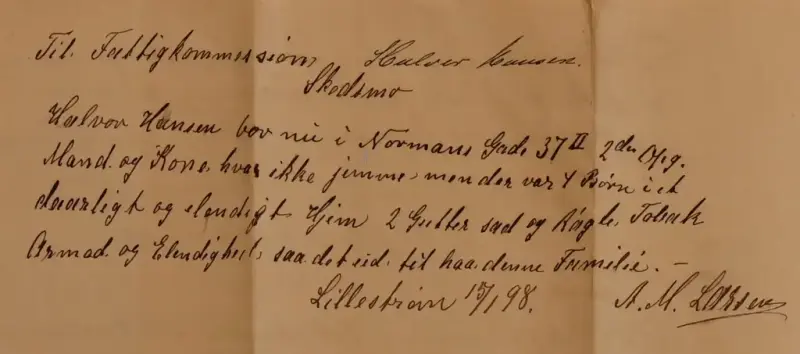 Til Fattigkommissión Halvor Hansen.
Skedsmo
Halvor Hansen bor nu i Normans Gade 37 II 2den Opg.
Mand og Kone, hvar ikke jemme, men der var 4 Børn i et
daarligt og elendigt Hjem 2 Gutter sad og Rágte Tobak
Armod og Elendighed, saa det ud til hos denne Familié. –
Lillestrøm 15/1 98. A. M. Larsen